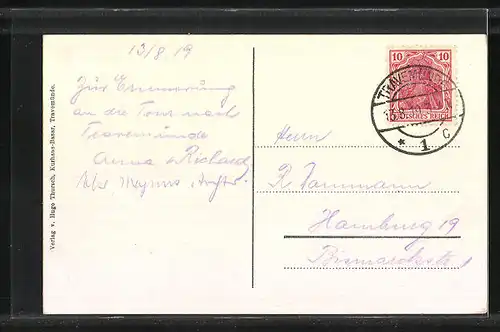 13/8 19
Zur Erinnerung
an die Tour nach
Travemünde
Anna Richard
Verlag v. Hugo Thursch, Kurhaus-Bazar, Travemünde.
10 10
DEUTSCHES REICH
TRAVEMÜNDE
13.8.19
* 1 c
Herrn
R. Tammann
Hamburg 19
Bismarckstr. 1